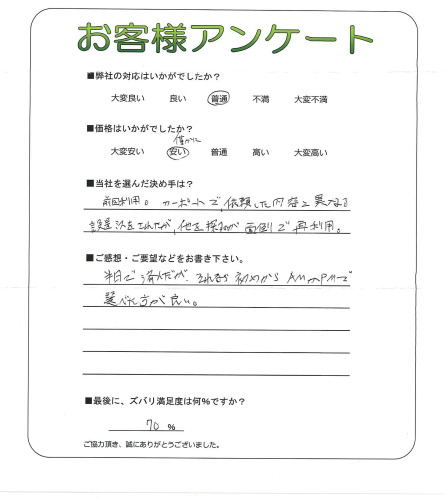 お客様アンケート
■弊社の対応はいかがでしたか？
大変良い 良い 普通 不満 大変不満
■価格はいかがでしたか？
僅かに
大変安い 安い 普通 高い 大変高い
■当社を選んだ決め手は？
前回利用。カーポートで、依頼した内容と異なる
設置法をされたが、他を探すのが面倒で再利用。
■ご感想・ご要望などをお書き下さい。
半日で済んだが、それなら初めからAMかPMで
選べた方が良い。
■最後に、ズバリ満足度は何％ですか？
70 %
ご協力頂き、誠にありがとうございました。